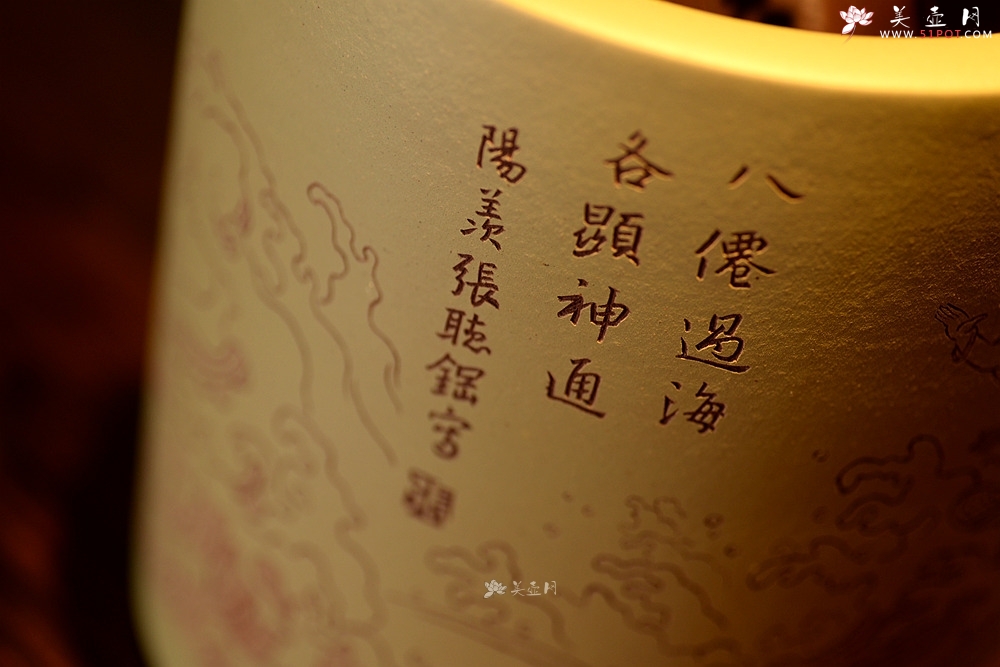 八僊過海
各顯神通
陽羨張聽鋸写
美壶网
WWW.51POT.COM
美壶网